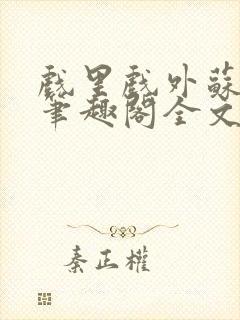 戲里戲外蘇
筆趣閣全文
秦正權